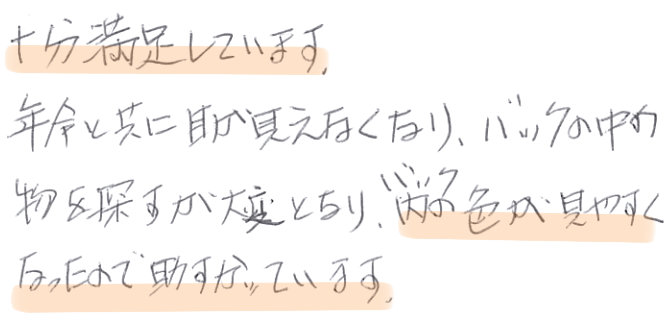 十分満足しています。
年令と共に目が見えなくなり、バックの中の
物を探すが大変となり、バック内の色が見やすく
なったので助すかっています。